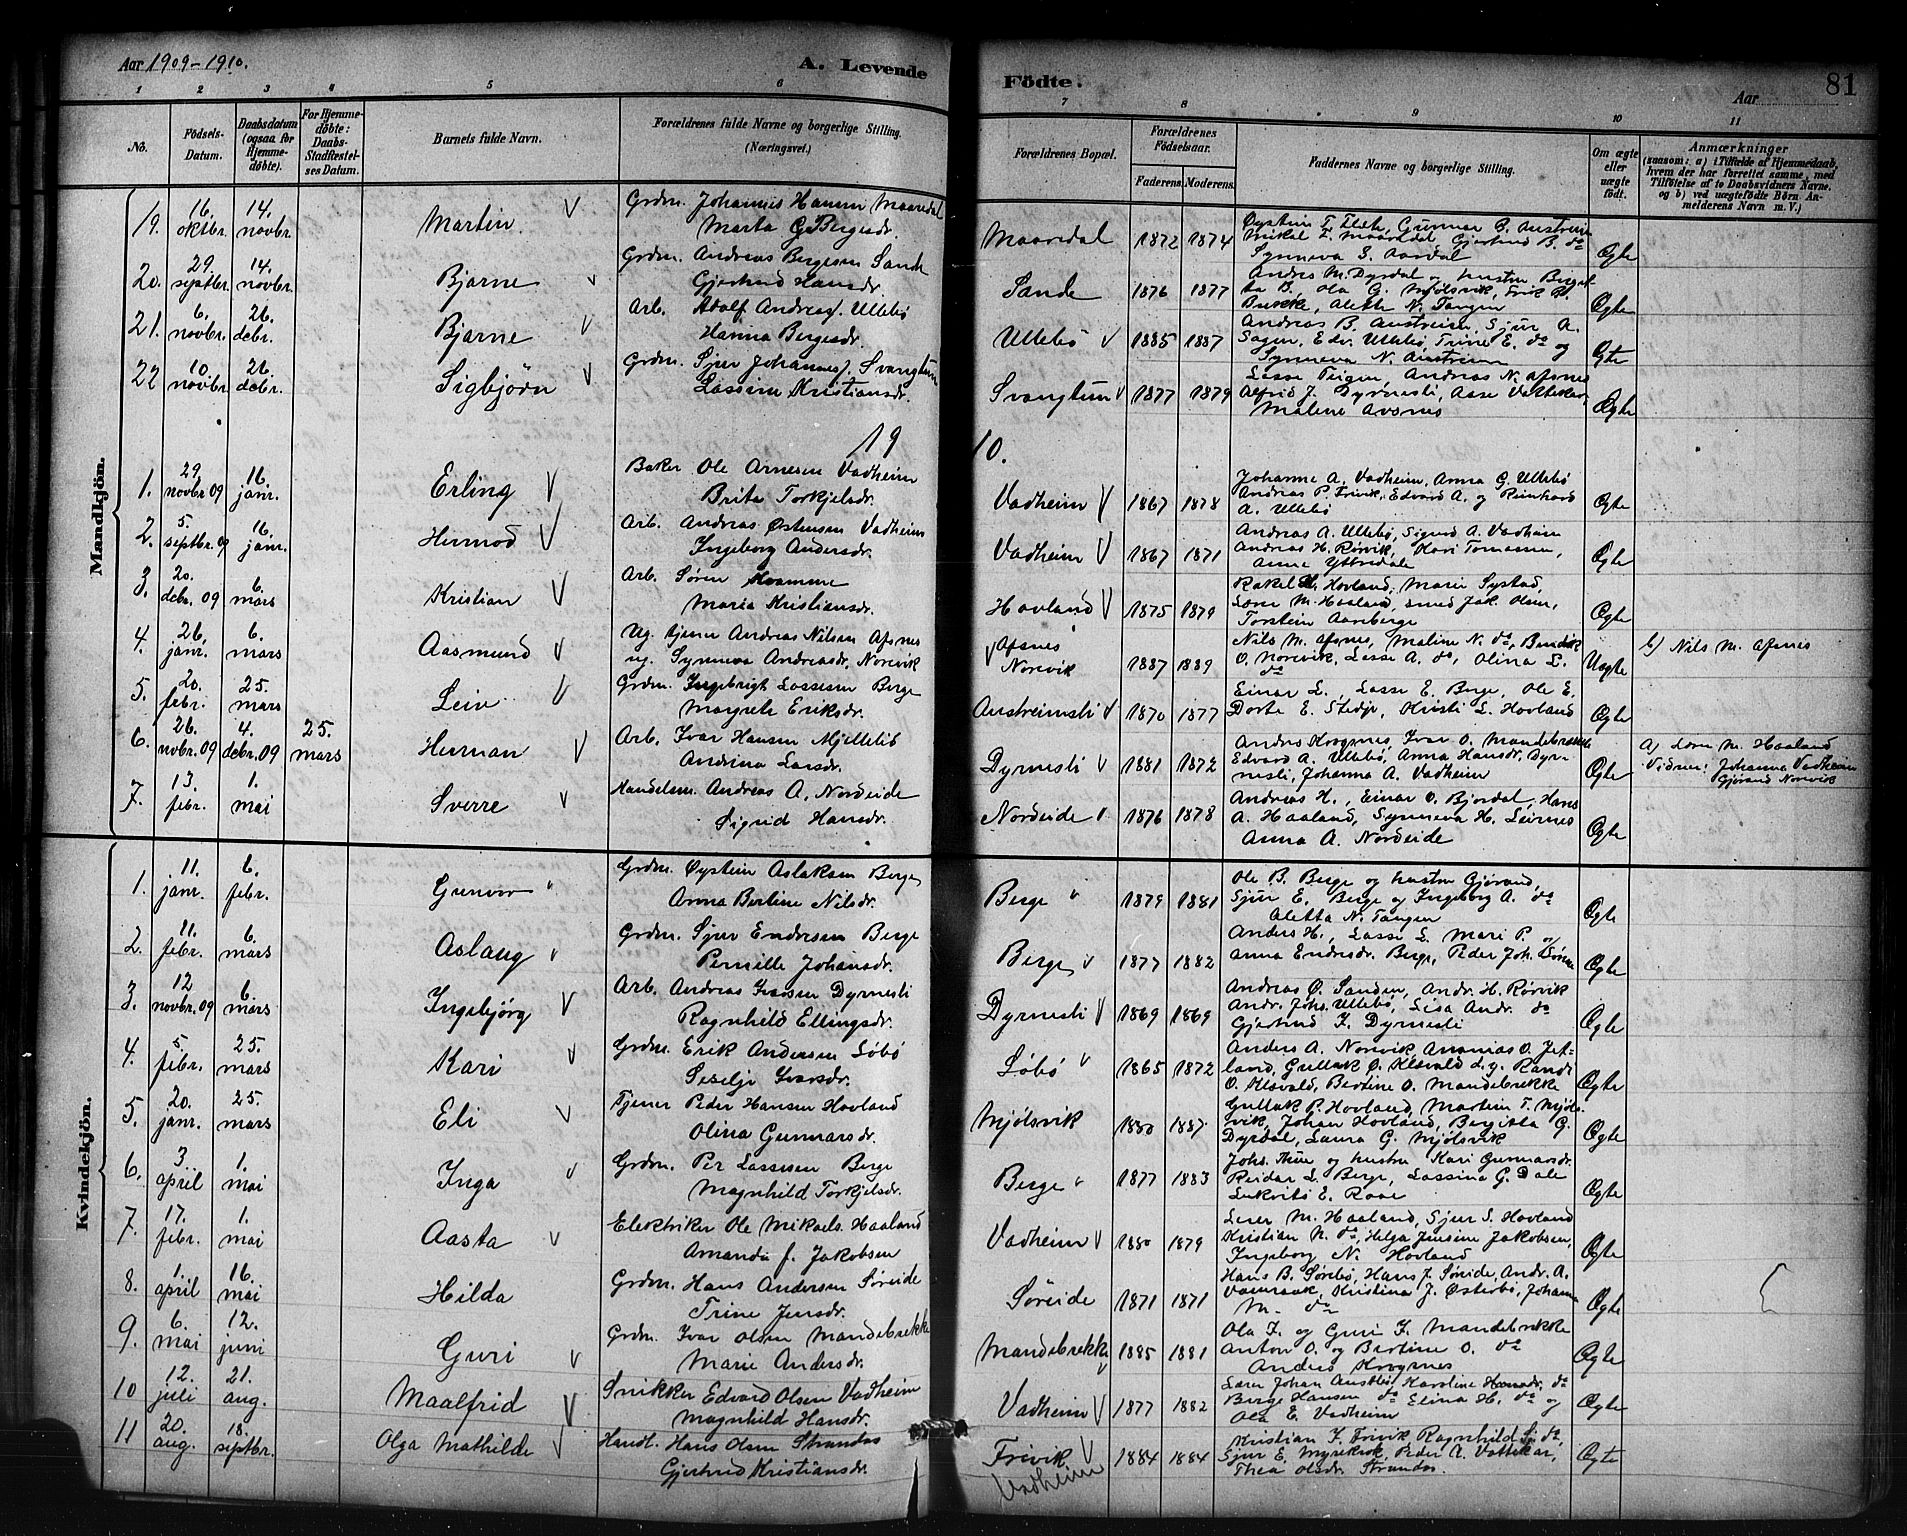 Aar 1909-1910.
A. Levende
Födte.
Aar
81
1 2 3 4 5 6 7 8 9 10 11
No.
Födsels-Datum.
Daabsdatum (ogsaa for Hjemmedøbte).
For Hjemmedøbte: Daabs-Stadfestelses Datum.
Barnets fulde Navn.
Forældrenes fulde Navne og borgerlige Stilling. (Næringsvei.)
Forældrenes Bopæl.
Forældrenes Födselsaar.
Faderens. Moderens.
Faddernes Navne og borgerlige Stilling.
Om ægte eller uægte födt.
Anmærkninger
(saasom: a) i Tilfælde af Hjemmedaab, hvem der har forrettet samme, med Tilføielse af to Daabsvidners Navne, og b) ved uægtefødte Börn Anmelderens Navn m. V.)
Mandkjön.
19. 16. oktbr. 14. novbr. Martin Grdm. Johannes Hansen Maaredal
Marta G. Bergesdr. Maaredal 1872 1874 Øystein T. Flete, Gunnar B. Austreim
Mikal I. Maaredal, Gjertrud B. do
Synneva S. Aardal Ægte
20. 29. septbr. 14. novbr. Bjarne Grdm. Andreas Bergesen Sande
Gjertrud Hansdr. Sande 1876 1877 Andrs M. Dyrdal og hustru Bergit-
ta B., Ola G. Mjölsvik, Erik B.
Bukke, Alette N. Tangen Ægte
21. 6. novbr. 26. debr. Bjarne Arb. Adolf Andreasf. Ullebö
Hanna Bergesdr. Ullebö 1885 1887 Andreas B. Austreim, Sjur A.
Sagen, Edv. Ullebö, Trine E. do og
Synneva N. Austreim Ægte
22 10. novbr. 26. debr. Sigbjörn Grdm. Sjur Johannesf. Svangtun
Lassine Kristiansdr. Svangtun 1877 1879 Lasse Teigen, Andreas N. Afsnes
Alfrid J. Dyrnesli, Aase Vattekar,
Malene Avsnes Ægte
1910.
1. 29 novbr 09 16. janr. Erling Baker Ole Arnesen Vadheim
Brita Torkjelsdr. Vadheim 1867 1878 Johanne A. Vadheim, Anna G. Ullebö
Andreas P. Frivik, Edvard A. og Reinhard
A. Ullebö Ægte
2. 5. septbr. 09 16. janr. Hermod Arb. Andreas Østensen Vadheim
Ingeborg Andersdr. Vadheim 1867 1871 Andreas A. Ullebö, Sigurd A. Vadheim
Andreas H. Rörvik, Kari Tomassen,
Anne Yttredale Ægte
3. 20. debr. 09 6. mars Kristian Arb. Sören Hvamme
Maria Kristiansdr. Hovland 1875 1879 Rakel Hovland, Marie Systad,
Lærer M. Haaland, smed Jak. Olsen,
Torstein Aarberge Ægte
4. 26. janr. 6. mars Aasmund Ug. tjener Andreas Nilsen Afsnes
ug. Synneva Andreasdr. Norevik Afsnes
Norevik 1887 1889 Nils M. Afsnes, Maline N. do, Bendik
O. Norevik, Lasse A. do, Olina L.
do Uægte b) Nils M. Afsnes
5. 20. febr. 25. mars Leiv Grdm. Ingebrigt Lassesen Berge
Margrete Eriksdr. Austreimsli 1870 1877 Einar L., Lasse E. Berge, Ole E.
Dorte E. Stedje, Kristi L. Hovland Ægte
6. 26. novbr. 09 4. debr. 09 25. mars Herman Arb. Ivar Hansen Mjellebö
Andrina Larsdr. Dyrnesli 1881 1872 Anders Kongsnes, Ivar O. Mandebrekke
Edvard A. Ullebö, Anna Hansdr. Dyr-
nesli, Johanna A. Vadheim Ægte a) Lærer M. Haaland
Vidner: Johanna Vadheim
Gjörand Norevik
7. 13. febr. 1. mai Sverre Handelsm. Andreas A. Nordeide
Sigrid Hansdr. Nordeide 1876 1878 Andreas H., Einar O. Bjordal, Hans
A. Haaland, Synneva H. Leirnes
Anna A. Nordeide Ægte
Kvindekjön.
1. 11. janr. 6. febr. Gunvor Grdm. Øystein Aslaksen Berge
Anna Bertine Nilsdr. Berge 1879 1881 Ole B. Berge og hustru Gjörand,
Sjur E. Berge og Ingeborg A. do
Aletta N. Tangen Ægte
2. 11. febr. 6. mars Aslaug Grdm. Sjur Endresen Berge
Pernille Johansdr. Berge 1877 1882 Anders H., Lasse L. Mari P. og
Anna Endresdr. Berge, Peder Joh. Ægte
3. 12 novbr. 09 6. mars Ingebjörg Arb. Andreas Ivarsen Dyrnesli
Ragnhild Ellingsdr. Dyrnesli 1869 1869 Andreas Ø. Sanden, Andr. H. Rörvik
Andr. Johs. Ullebö, Lisa Andr. do
Gjertrud I. Dyrnesli Ægte
4. 5. febr. 25. mars Kari Grdm. Erik Andersen Löbö
Seselje Ivarsdr. Löbö 1865 1872 Anders A. Norevik, Ananias O. Jet-
land, Gullak O. Alsvald og Randi
O. Alsvald, Bertine O. Mandebrekke Ægte
5. 20. janr. 25. mars Eli Tjener Peder Hansen Hovland
Olina Gunnarsdr. Mjölsvik 1880 1887 Gullak P. Hovland, Martin T. Mjöls-
vik, Johan Hovland, Bergitta G.
Dyrdal, Laura G. Mjölsvik Ægte
6. 3 april 1. mai Inga Grdm. Per Lassesen Berge
Magnhild Torkjelsdr. Berge 1877 1883 Johs. Thue og hustru Kari Gunnarsdr.
Reidar L. Berge, Lassina G. Dale
Lukvits E. Raae Ægte
7. 17. febr. 1. mai Aasta Elektriker Ole Mikaels. Haaland
Amanda f. Jakobsen Vadheim 1880 1879 Lærer M. Haaland, Sjur S. Hovland
Kristian N. do, Helga Jensine Jakobsen,
Ingeborg N. Hovland Ægte
8. 1. april 16. mai Hilda Grdm. Hans Andersen Söreide
Trine Jensdr. Söreide 1871 1871 Hans B. Sörebö, Hans J. Söreide, Andr. A.
Vamraak, Kristina J. Österbö, Johanna
M. do Ægte
9. 6. mai 12. juni Guri Grdm. Ivar Olsen Mandebrekke
Marie Andersdr. Mandebrekke 1885 1881 Ola I. og Guri I. Mandebrekke
Anton O. og Bertine O. do
Anders Kongsnes Ægte
10 12. juli 21. aug. Maalfrid Snikker Edvard Olsen Vadheim
Magnhild Hansdr. Vadheim 1877 1882 Lærer Johan Austbö, Karoline Hansdr. do
Berge Hansen do Elina H. do og
Ola E. Vadheim Ægte
11 20. aug. 18. septbr. Olga Mathilde Handl. Hans Olsen Strandos
Gjertrud Kristiansdr. Frivik
Vadheim 1884 1884 Kristian I. Frivik Ragnhild S. do,
Sjur E. Myrekrok, Peder A. Vattekar,
Thea Olsdr. Strandos. Ægte